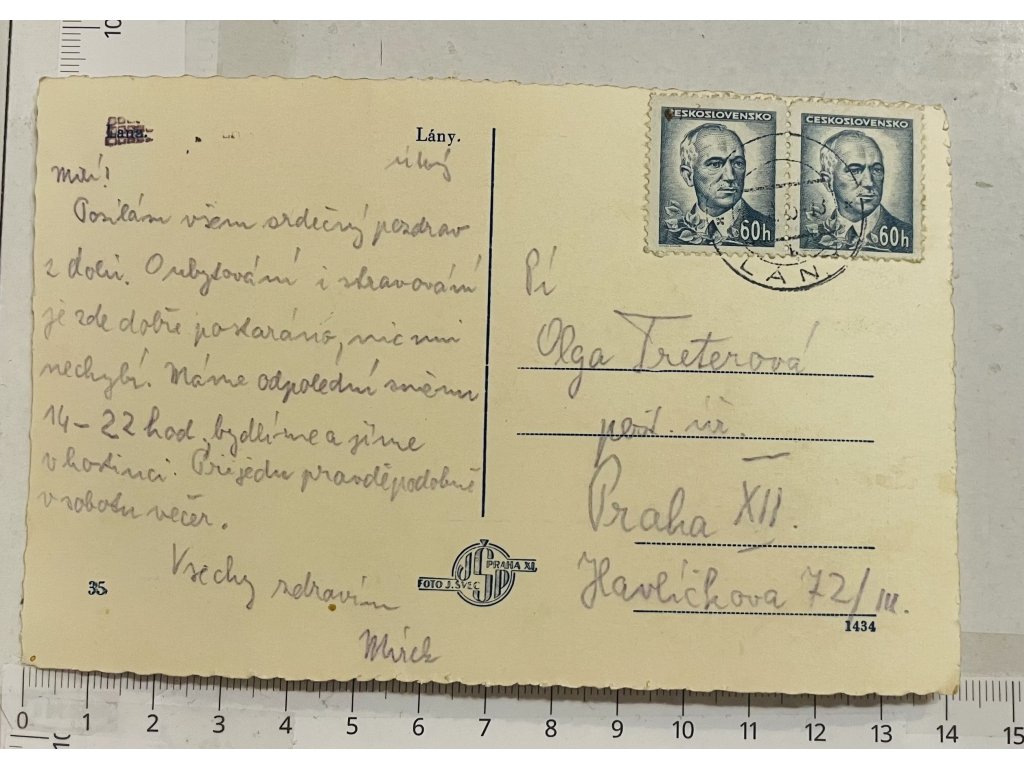 Lány.
úterý
Milí!
Posílám všem srdečný pozdrav
z dolů. O ubytování i stravování
je zde dobře postaráno, nic mi
nechybí. Máme odpolední směnu
14-22 hod, bydlíme a jíme
v hostinci. Přijedu pravděpodobně
v sobotu večer.
Všechny zdravím
Mirek
35.
FOTO J. ŠVEC
PRAHA XI.
ČESKOSLOVENSKO
60h
ČESKOSLOVENSKO
60h
LÁN
Pí
Olga Treterová
pošt. úř.
Praha XII.
Havlíčkova 72/III.
1434
0 1 2 3 4 5 6 7 8 9 10 11 12 13 14 15
10
10